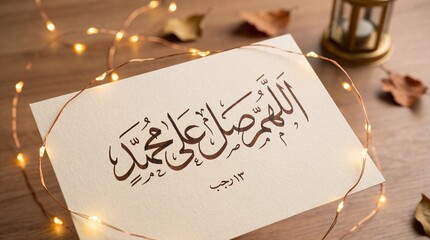 اللّهُمَّ صَلِّ عَلَى مُحَمَّدٍ
١٣ رجب